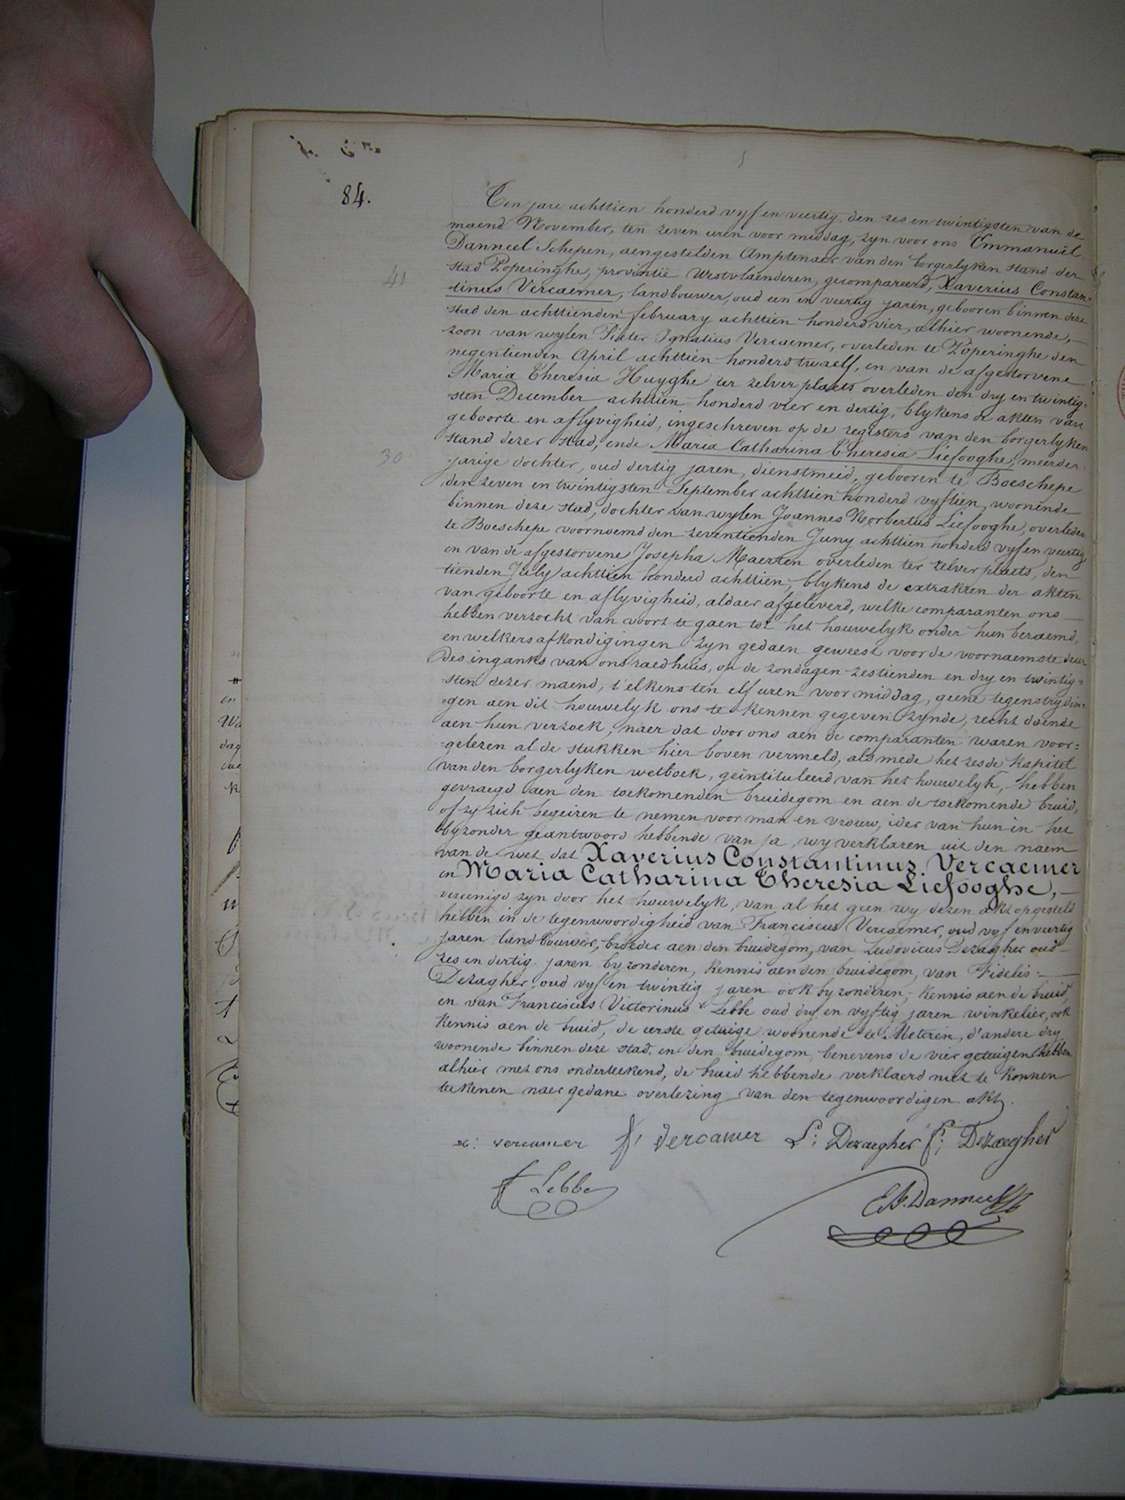 84.
Ten jare achttien honderd vyf en veertig, den zes en twintigsten van de
maend November, ten zeven uren voor middag, zyn voor ons Emmanuel
Danneel Schepen, aengestelden Amptenaer van den borgerlyken stand der
41
stad Poperinghe, provintie Westvlaenderen, gecompareerd, Xaverius Constan-
tinus Vercaemer, landbouwer, oud een en veertig jaren, gebooren binnen deze
stad den achttienden february achttien honderd vier, alhier woonende,
zoon van wylen Pieter Ignatius Vercaemer, overleden te Poperinghe den
negentienden April achttien honderd twaelf, en van de afgestorvene
Maria Theresia Huyghe ter zelver plaets overleden den dry en twintig-
sten December achttien honderd vier en dertig, blykens de akten van
geboorte en aflyvigheid, ingeschreven op de registers van den borgerlyken
stand dezer stad, ende Maria Catharina Theresia Liefooghe, meerder-
30
jarige dochter, oud dertig jaren, dienstmeid, gebooren te Boeschepe
den zeven en twintigsten September achttien honderd vyftien, woonende
binnen deze stad, dochter van wylen Joannes Norbertus Liefooghe, overleden
te Boeschepe voornoemd den zeventienden Juny achttien honderd vyf en veertig
en van de afgestorvene Josepha Maerten overleden ter zelver plaets, den
tienden July achttien honderd achttien, blykens de extrakten der akten
van geboorte en aflyvigheid, aldaer afgeleverd, welke comparanten ons
hebben verzocht van voort te gaen tot het houwelyk onder hun beraemd,
en welkers afkondigingen zyn gedaen geweest voor de voornaemste deur
des ingangs van ons raedhuis, op de zondagen zestienden en dry en twintig-
sten dezer maend, t'elkens ten elf uren voor middag, geene tegenstrydin-
gen aen dit houwelyk ons te kennen gegeven zynde, recht doende
aen hun verzoek, naer dat door ons aen de comparanten waren voor-
gelezen al de stukken hier boven vermeld, als mede het zesde kapitel
van den borgerlyken wetboek, geïntituleerd van het houwelyk, hebben
gevraegd aen den toekomenden bruidegom en aen de toekomende bruid,
of zy zich begeiren te nemen voor man en vrouw, ider van hun in het
byzonder geantwoord hebbende van ja, wy verklaren uit den naem
van de wet dat Xaverius Constantinus Vercaemer
en Maria Catharina Theresia Liefooghe,
vereenigd zyn door het houwelyk, van al het geen wy dezen akt opgesteld
hebben in de tegenwoordigheid van Franciscus Vercaemer, oud vyf en veertig
jaren landbouwer, broeder aen den bruidegom, van Ludovicus Dezagher oud
zes en dertig jaren byzonderen, kennis aen den bruidegom, van Fidelis
Dezagher, oud vyf en twintig jaren ook byzonderen, kennis aen de bruid,
en van Franciscus Victorinus Lebbe oud dry en vyftig jaren winkelier, ook
kennis aen de bruid, de eerste getuige woonende te Meteren, d'andere dry
woonende binnen deze stad, en den bruidegom, benevens de vier getuigen hebben
alhier met ons onderteekend, de bruid hebbende verklaerd niet te konnen
teekenen naer gedane overlezing van den tegenwoordigen akt.
x: vercamer f: vercamer L: Dezaegher f: Dezaegher
f Lebbe
E. Danneel